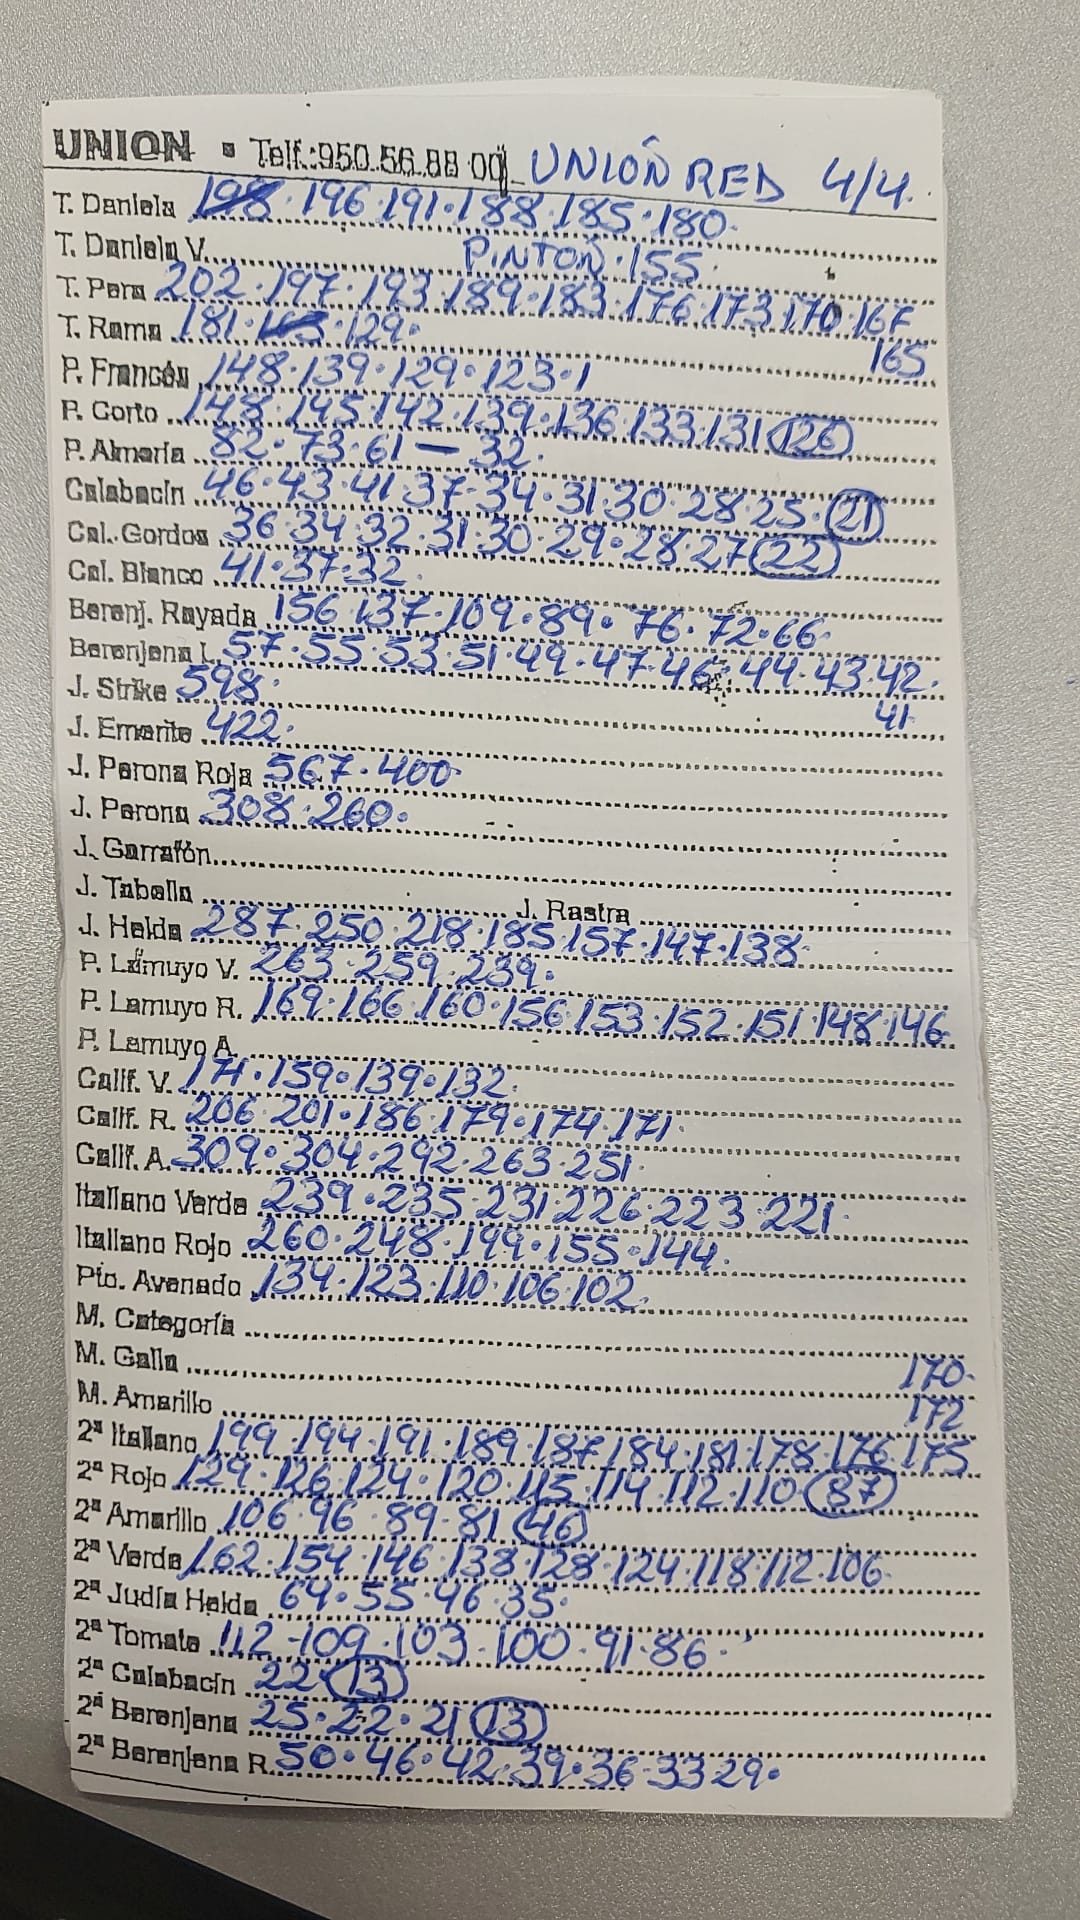 UNION ▪ Telf.:950.56.88 00 UNION RED 4/4.
T. Daniela 198 · 196 · 191 · 188 · 185 · 180
T. Daniela V. PINTON · 155
T. Pera 202 · 197 · 193 · 189 · 183 · 176 · 173 · 170 · 167
165
T. Rama 181 · 163 · 129
P. Francés 148 · 139 · 129 · 123 · 1
P. Corto 148 · 145 · 142 · 139 · 136 · 133 · 131 126
P. Almería 82 · 73 · 61 — 32
Calabacín 46 · 43 · 41 · 37 · 34 · 31 · 30 · 28 · 25 · 21
Cal. Gordos 36 · 34 · 32 · 31 · 30 · 29 · 28 · 27 22
Cal. Blanco 41 · 37 · 32
Berenj. Rayada 156 · 137 · 109 · 89 · 76 · 72 · 66
Berenjena L. 57 · 55 · 53 · 51 · 49 · 47 · 46 · 44 · 43 · 42
41
J. Strike 598
J. Emerite 422
J. Perona Roja 567 · 400
J. Perona 308 · 260
J. Garrafón
J. Tabella J. Rastra
J. Helda 287 · 250 · 218 · 185 · 157 · 147 · 138
P. Lamuyo V. 263 · 259 · 239
P. Lamuyo R. 169 · 166 · 160 · 156 · 153 · 152 · 151 · 148 · 146
P. Lamuyo A.
Calif. V. 171 · 159 · 139 · 132
Calif. R. 206 · 201 · 186 · 179 · 174 · 171
Calif. A. 309 · 304 · 292 · 263 · 251
Italiano Verde 239 · 235 · 231 · 226 · 223 · 221
Italiano Rojo 260 · 248 · 199 · 155 · 144
Pto. Avenado 134 · 123 · 110 · 106 · 102
M. Categoría
M. Galia 170
M. Amarillo 172
2ª Italiano 199 · 194 · 191 · 189 · 187 · 184 · 181 · 178 · 176 · 175
2ª Rojo 129 · 126 · 124 · 120 · 115 · 114 · 112 · 110 · 87
2ª Amarillo 106 · 96 · 89 · 81 46
2ª Verde 162 · 154 · 146 · 138 · 128 · 124 · 118 · 112 · 106
2ª Judía Helda 64 · 55 · 46 · 35
2ª Tomate 112 · 109 · 103 · 100 · 91 · 86
2ª Calabacín 22 · 13
2ª Berenjena 25 · 22 · 21 13
2ª Berenjena R. 50 · 46 · 42 · 39 · 36 · 33 · 29